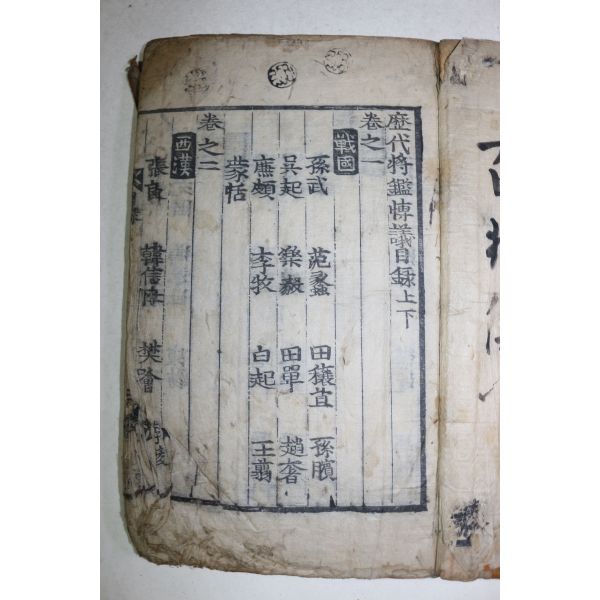 歷代将鑑愽議目録上下
卷之一
戰國
孫武 范蠡 田穰苴 孫臏
吳起 樂毅 田單 趙奢
廉頗 李牧 白起 王翦
蒙恬
卷之二
西漢
張良 韓信 樊噲